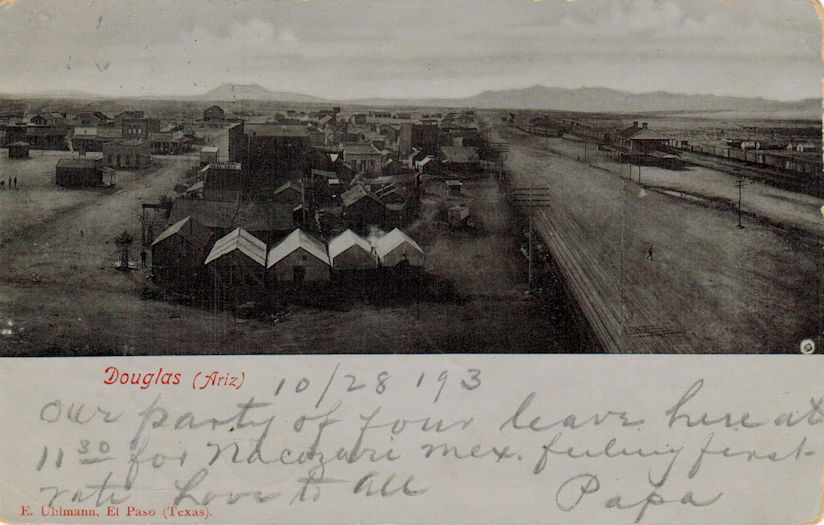 Douglas (Ariz) 10/28 193
Our party of four leave here at
11 30 for Nacozari Mex. feeling first-
rate Love to all Papa
E. Uhlmann, El Paso (Texas).